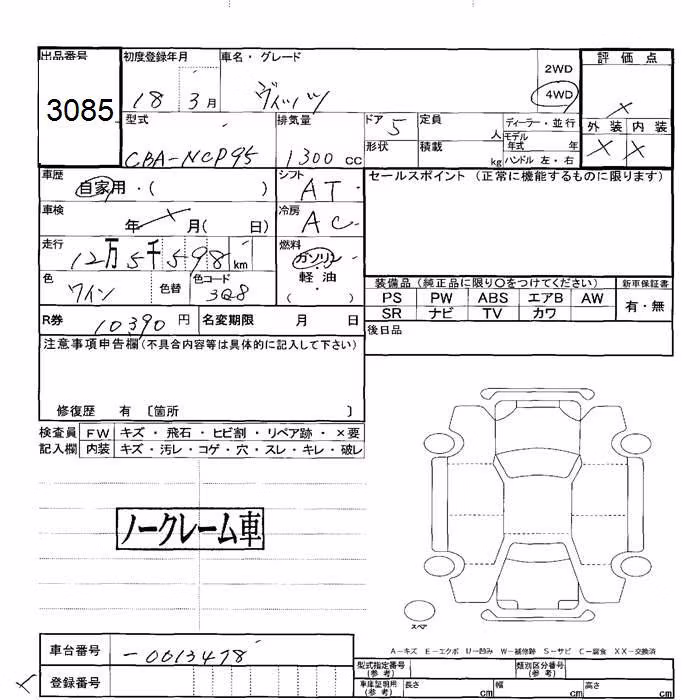 出品番号 初度登録年月 車名・グレード 評価点
3085 18 3月 ヴィッツ 2WD 4WD ×
型式 排気量 ドア 5 定員 人 ディーラー・並行 外装 内装
CBA-NCP95 1300cc 形状 積載 kg モデル年式 年 ハンドル 左・右 × ×
車歴 自家用・( ) シフト AT セールスポイント (正常に機能するものに限ります)
車検 年 × 月( 日) 冷房 AC
走行 12万5千598km 燃料 ガソリン 軽・油 ( )
色 ワイン 色替 色コード 3Q8 装備品(純正品に限り〇をつけてください) 新車保証書
PS PW ABS エアB AW 有・無
SR ナビ TV カワ
R券 10390円 名変期限 月 日 後日品
注意事項申告欄(不具合内容等は具体的に記入して下さい)
修復歴 有 〔箇所 〕
検査員 FW キズ・飛石・ヒビ割・リペア跡・×要
記入欄 内装 キズ・汚レ・コゲ・穴・スレ・キレ・破レ
ノークレーム車
スペア
A-キズ E-エクボ U-凹み W-補修跡 S-サビ C-腐食 XX-交換済
車台番号 -0013478 型式指定番号(参考) 類別区分番号(参考)
登録番号 車庫証明用(参考) 長さ cm 幅 cm 高さ cm